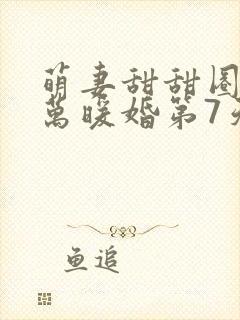 萌妻甜甜圈
萬暖婚第7
鱼追